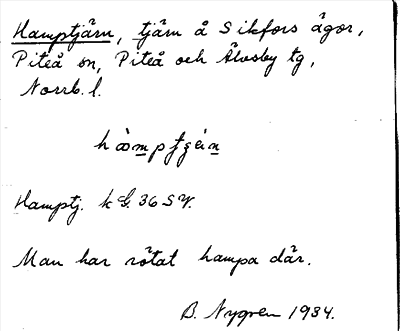 Hamptjärn, tjärn å Sikfors ägor,
Piteå sn, Piteå och Älvsby tg,
Norrb. l.
Hamptj. k bl. 36 SV.
Man har rötat hampa där.
B. Nygren 1934.